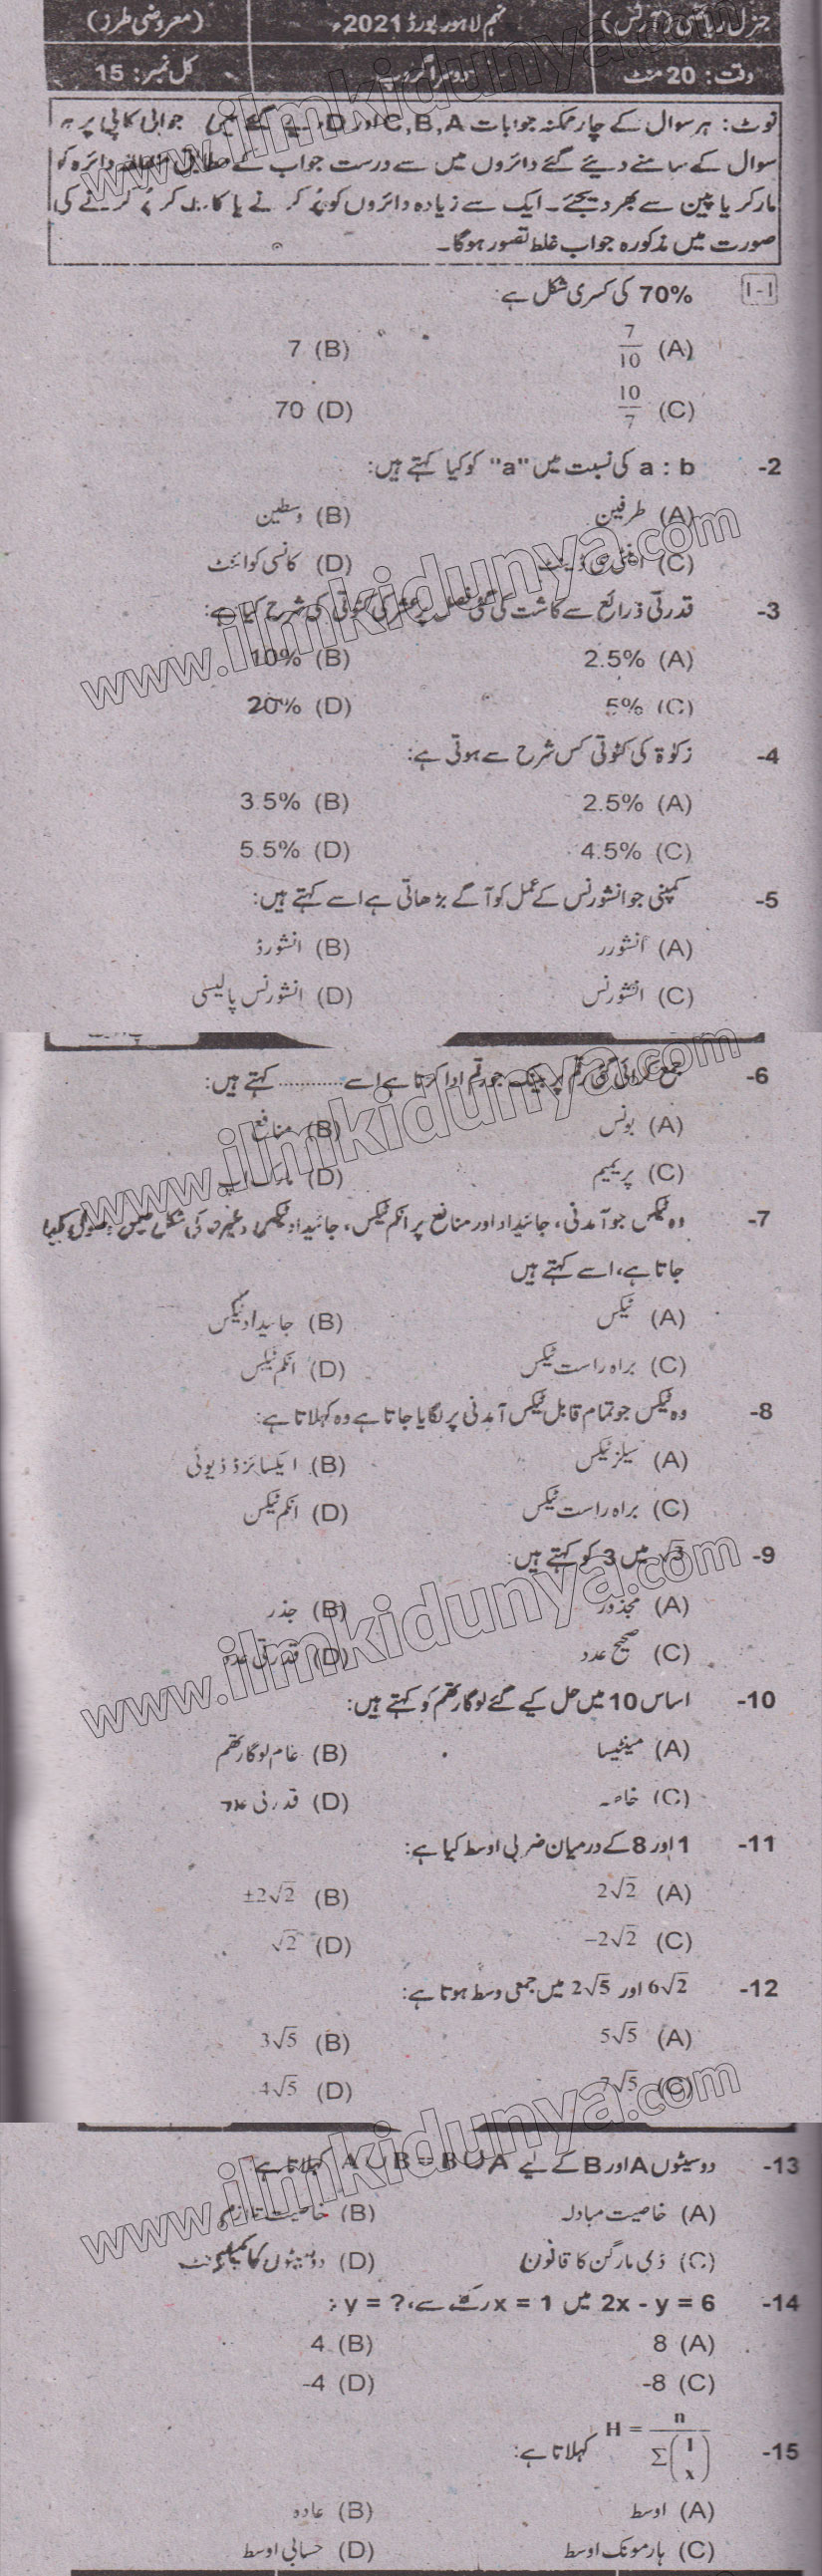 جنرل ریاضی (آرٹس) نہم لاہور بورڈ 2021ء (معروضی طرز)
وقت: 20 منٹ دوسرا گروپ کل نمبر: 15
نوٹ: ہر سوال کے چار ممکنہ جوابات C,B,A اور D دیئے گئے ہیں۔ جوابی کاپی پر ہر
سوال کے سامنے دیئے گئے دائروں میں سے درست جواب کے مطابق متعلقہ دائرہ کو
مارکر یا پین سے بھر دیجئے۔ ایک سے زیادہ دائروں کو پُر کرنے یا کاٹ کر پُر کرنے کی
صورت میں مذکورہ جواب غلط تصور ہوگا۔
1-1 70% کی کسری شکل ہے
(A) 7/10 (B) 7
(C) 10/7 (D) 70
-2 a : b کی نسبت میں "a" کو کیا کہتے ہیں:
(A) طرفین (B) وسطین
(C) (D) کانسی کوائنٹ
-3 قدرتی ذرائع سے کاشت کی گئی فصل پر عشر کی کٹوتی کی شرح کیا ہے:
(A) 2.5% (B) 10%
(C) 5% (D) 20%
-4 زکوٰۃ کی کٹوتی کس شرح سے ہوتی ہے:
(A) 2.5% (B) 3.5%
(C) 4.5% (D) 5.5%
-5 کمپنی جو انشورنس کے عمل کو آگے بڑھاتی ہے اسے کہتے ہیں:
(A) انشورر (B) انشورڈ
(C) انشورنس (D) انشورنس پالیسی
-6 جمع کرائی گئی رقم پر بینک جو رقم ادا کرتا ہے اسے ............ کہتے ہیں:
(A) بونس (B) منافع
(C) پریمیم (D) مارک اپ
-7 وہ ٹیکس جو آمدنی، جائیداد اور منافع پر انکم ٹیکس، جائیداد ٹیکس وغیرہ کی شکل میں وصول کیا
جاتا ہے، اسے کہتے ہیں
(A) ٹیکس (B) جائیداد ٹیکس
(C) براہ راست ٹیکس (D) انکم ٹیکس
-8 وہ ٹیکس جو تمام قابل ٹیکس آمدنی پر لگایا جاتا ہے وہ کہلاتا ہے:
(A) سیلز ٹیکس (B) ایکسائزڈ ڈیوٹی
(C) براہ راست ٹیکس (D) انکم ٹیکس
-9 √3 میں 3 کو کہتے ہیں:
(A) مجذور (B) جذر
(C) صحیح عدد (D) قدرتی عدد
-10 اساس 10 میں حل کیے گئے لوگارتھم کو کہتے ہیں:
(A) مینٹیسا (B) عام لوگارتھم
(C) خاصہ (D) قدرتی عدد
-11 1 اور 8 کے درمیان ضربی اوسط کیا ہے:
(A) 2√2 (B) ±2√2
(C) −2√2 (D) √2
-12 6√2 اور 2√5 میں جمعی وسط ہوتا ہے:
(A) 5√5 (B) 3√5
(C) 7√5 (D) 4√5
-13 دو سیٹوں A اور B کے لیے A∪B = B∪A کہلاتا ہے
(A) خاصیت مبادلہ (B) خاصیت تلازمی
(C) ڈی مارگن کا قانون (D) دو سیٹوں کا کمپلیمنٹ
-14 2x - y = 6 میں x = 1 رکھنے سے، y = ? :
(A) 8 (B) 4
(C) -8 (D) -4
-15 H = n/Σ(1/x) کہلاتا ہے:
(A) اوسط (B) عادہ
(C) ہارمونک اوسط (D) حسابی اوسط
www.ilmkidunya.com
www.ilmkidunya.com
www.ilmkidunya.com
www.ilmkidunya.com
www.ilmkidunya.com